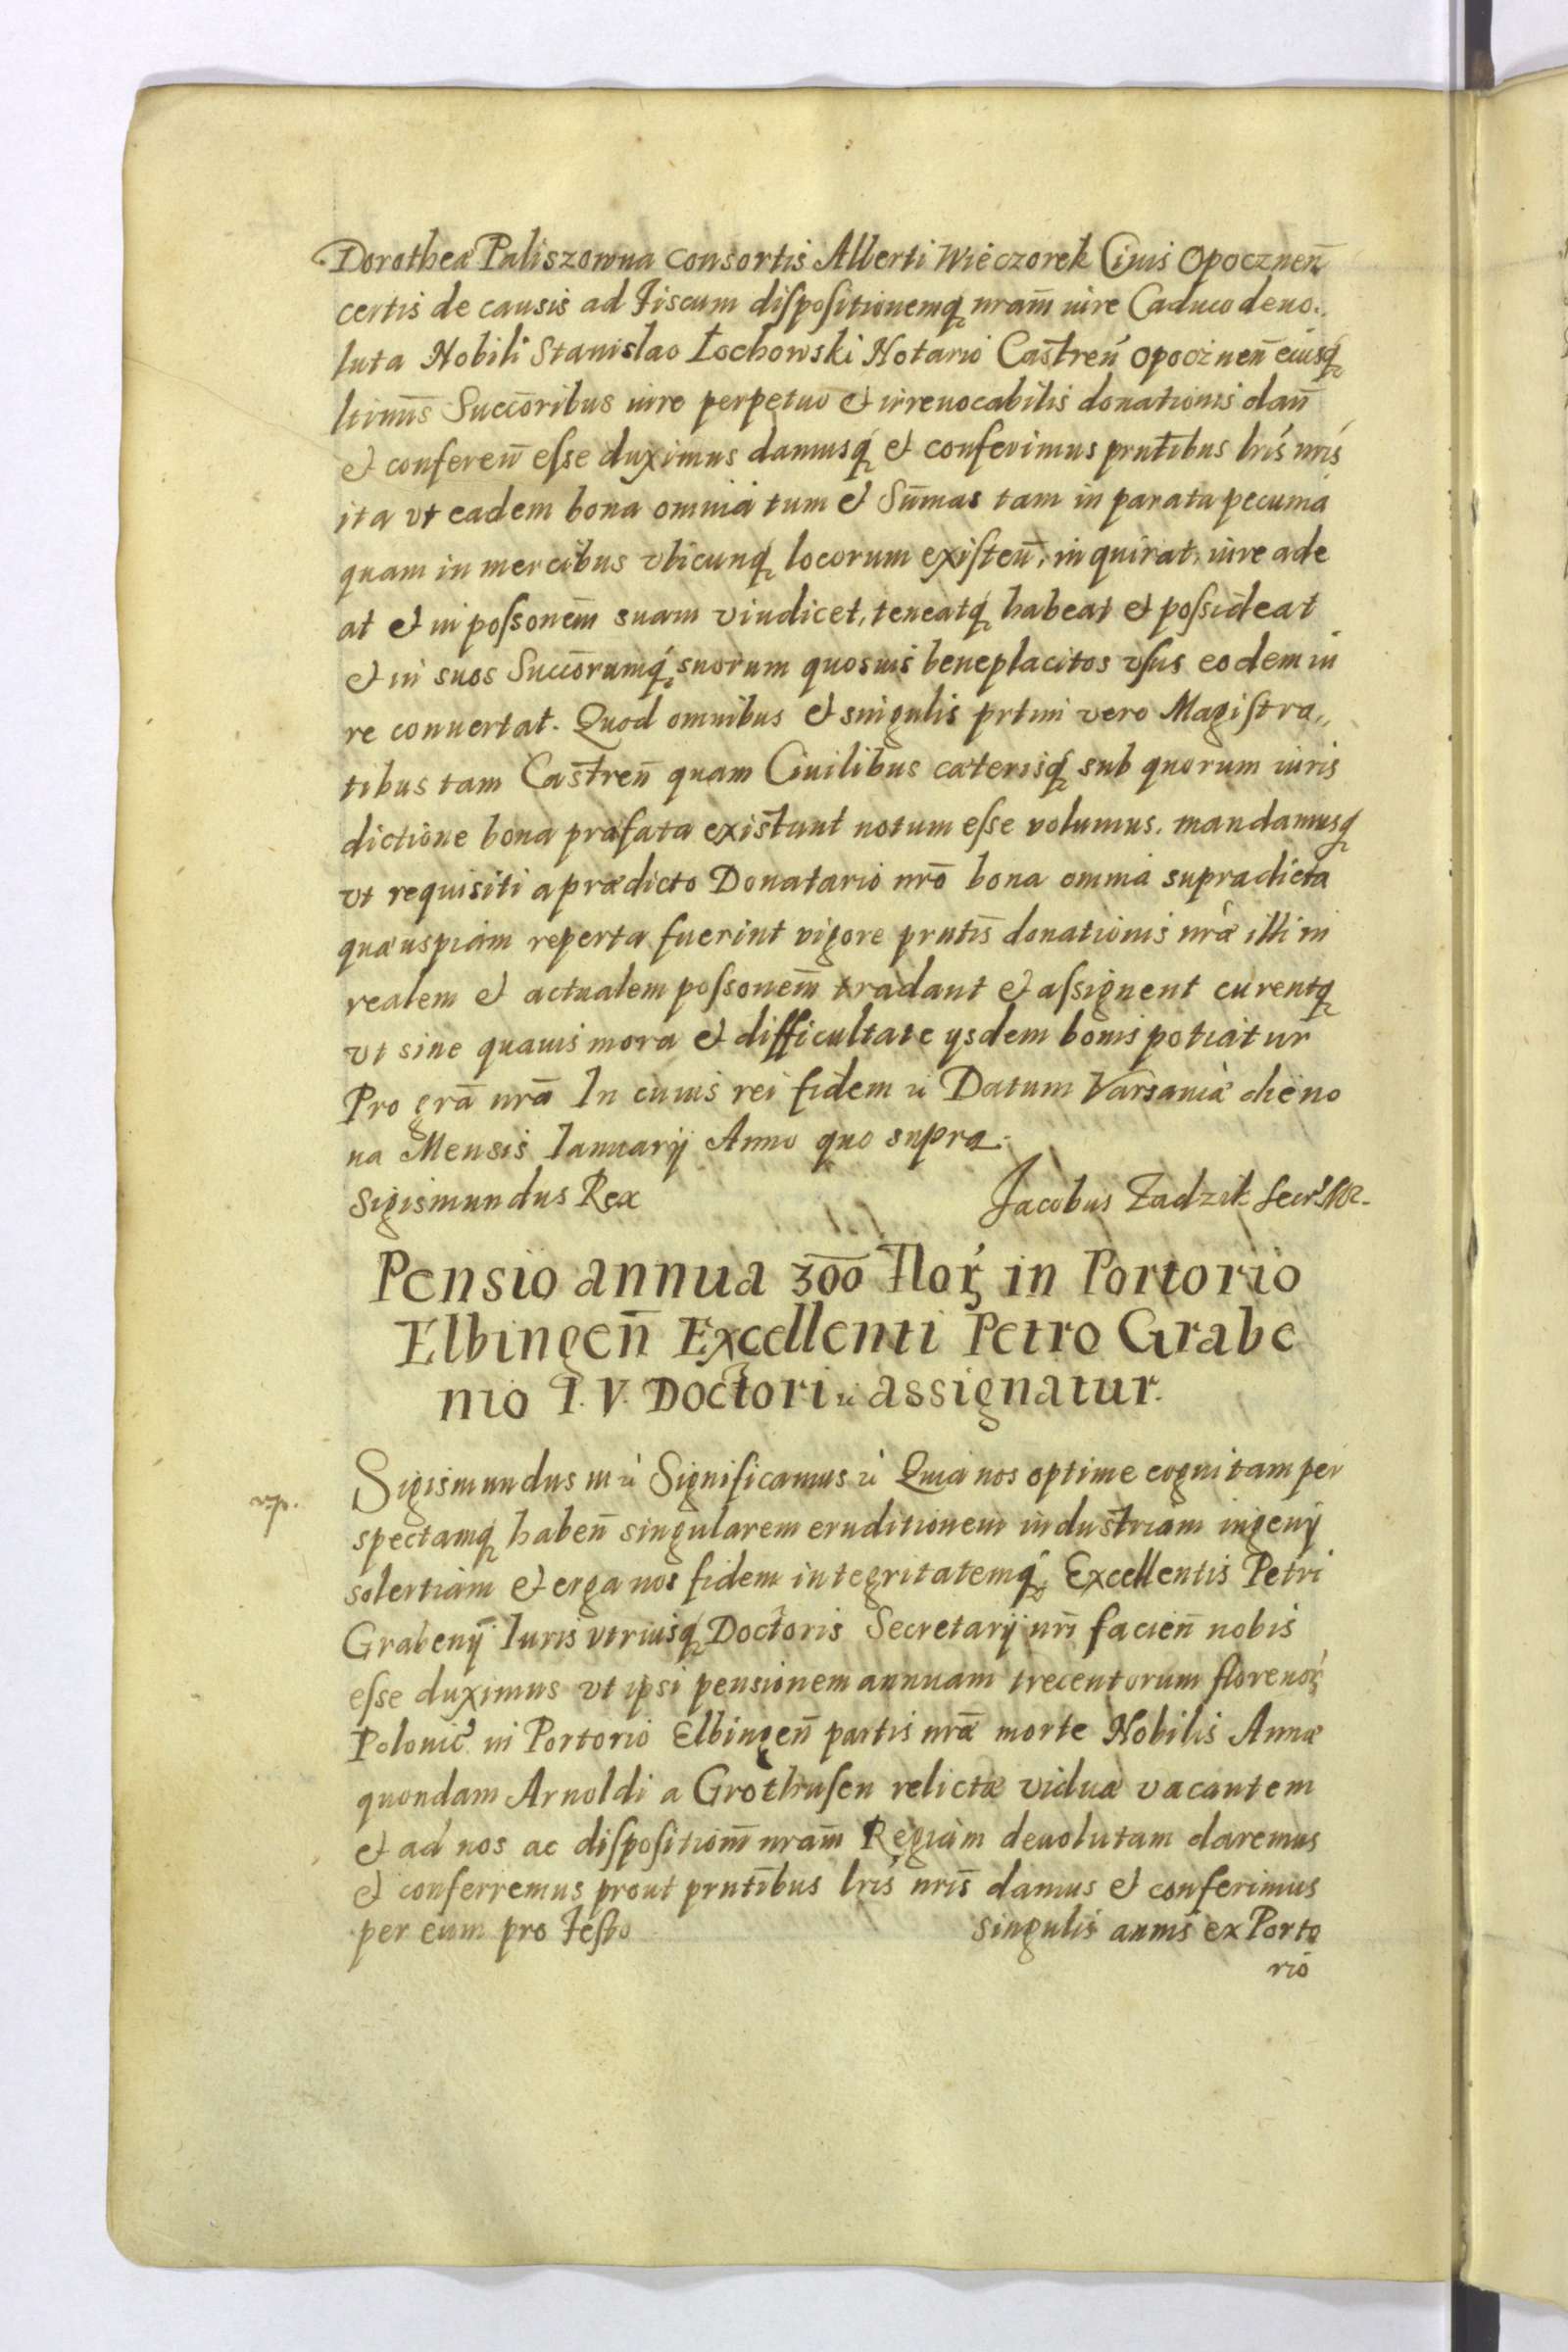 Dorotheæ Paliszowna consortis Alberti Wieczorek Ciuis Opocznen̄
certis de causis ad Fiscum dispositionemq nram̄ iure Caduco deuo„
luta Nobili Stanislao Łochowski Notario Castren̄ Opocznen̄ eiusq
ltimis̄ Succōribus iure perpetuo et irreuocabilis donationis dan̄
et conferen̄ esse duximus damusq et conferimus prntibus lris nris
ita vt eadem bona omnia tum et Sum̄as tam in parata pecunia
quam in mercibus vbicunq locorum existen̄, inquirat, iure ade
at et in possonem̄ suam vindicet, teneatq habeat et possideat
et in suos Succōrumq suorum quosuis beneplacitos vsus eodem iu
re conuertat. Quod omnibus et singulis prtim vero Magistra„
tibus tam Castren̄ quam Ciuilibus cæterisq sub quorum iuris
dictione bona præfata existunt notum esse volumus. mandamusq
vt requisiti a prædicto Donatario nrō bona omnia supradicta
quæuspiam reperta fuerint vigore prntis̄ donationis nræ illi in
realem et actualem possonem̄ tradant et assignent curentq
vt sine quauis mora et difficultate ysdem bonis potiatur
Pro grā nrā In cuius rei fidem etc Datum Varsauiæ die no
na Mensis Ianuarij Anno quo supra.
Sigismundus Rex Jacobus Zadzik Secr
Pensio annua 300 Flor in Portorio
Elbingen̄ Excellenti Petro Grabe
nio I. V. Doctori etc assignatur.
Sigismundus III etc Significamus etc Quia nos optime cognitam per
spectamq haben̄ singularem eruditionem industriam ingenij
solertiam et erga nos fidem integritatemq Excellentis Petri
Grabenij Iuris vtriusq Doctoris Secretarij nri̅ facien̄ nobis
esse duximus vt ipsi pensionem annuam trecentorum florenor
Polonic in Portorio Elbingen̄ partis nræ̅ morte Nobilis Annæ
quondam Arnoldi a Grothusen relictæ viduæ vacantem
et ad nos ac dispositionm̄ nram̄ Regiam deuolutam daremus
et conferremus prout prntibus lris nris̄ damus et conferimus
per eum pro Festo singulis annis ex Porto
rio